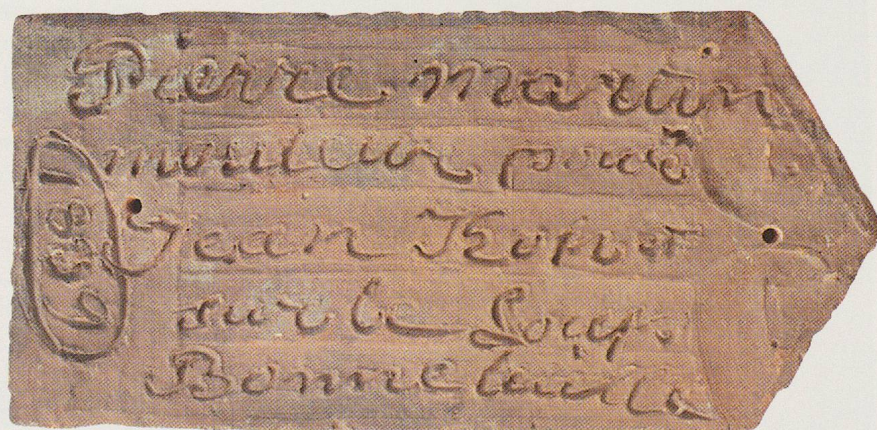 Pierre martin
mouleur pour
Jean
sur le Loup
Bonne tuille
1839